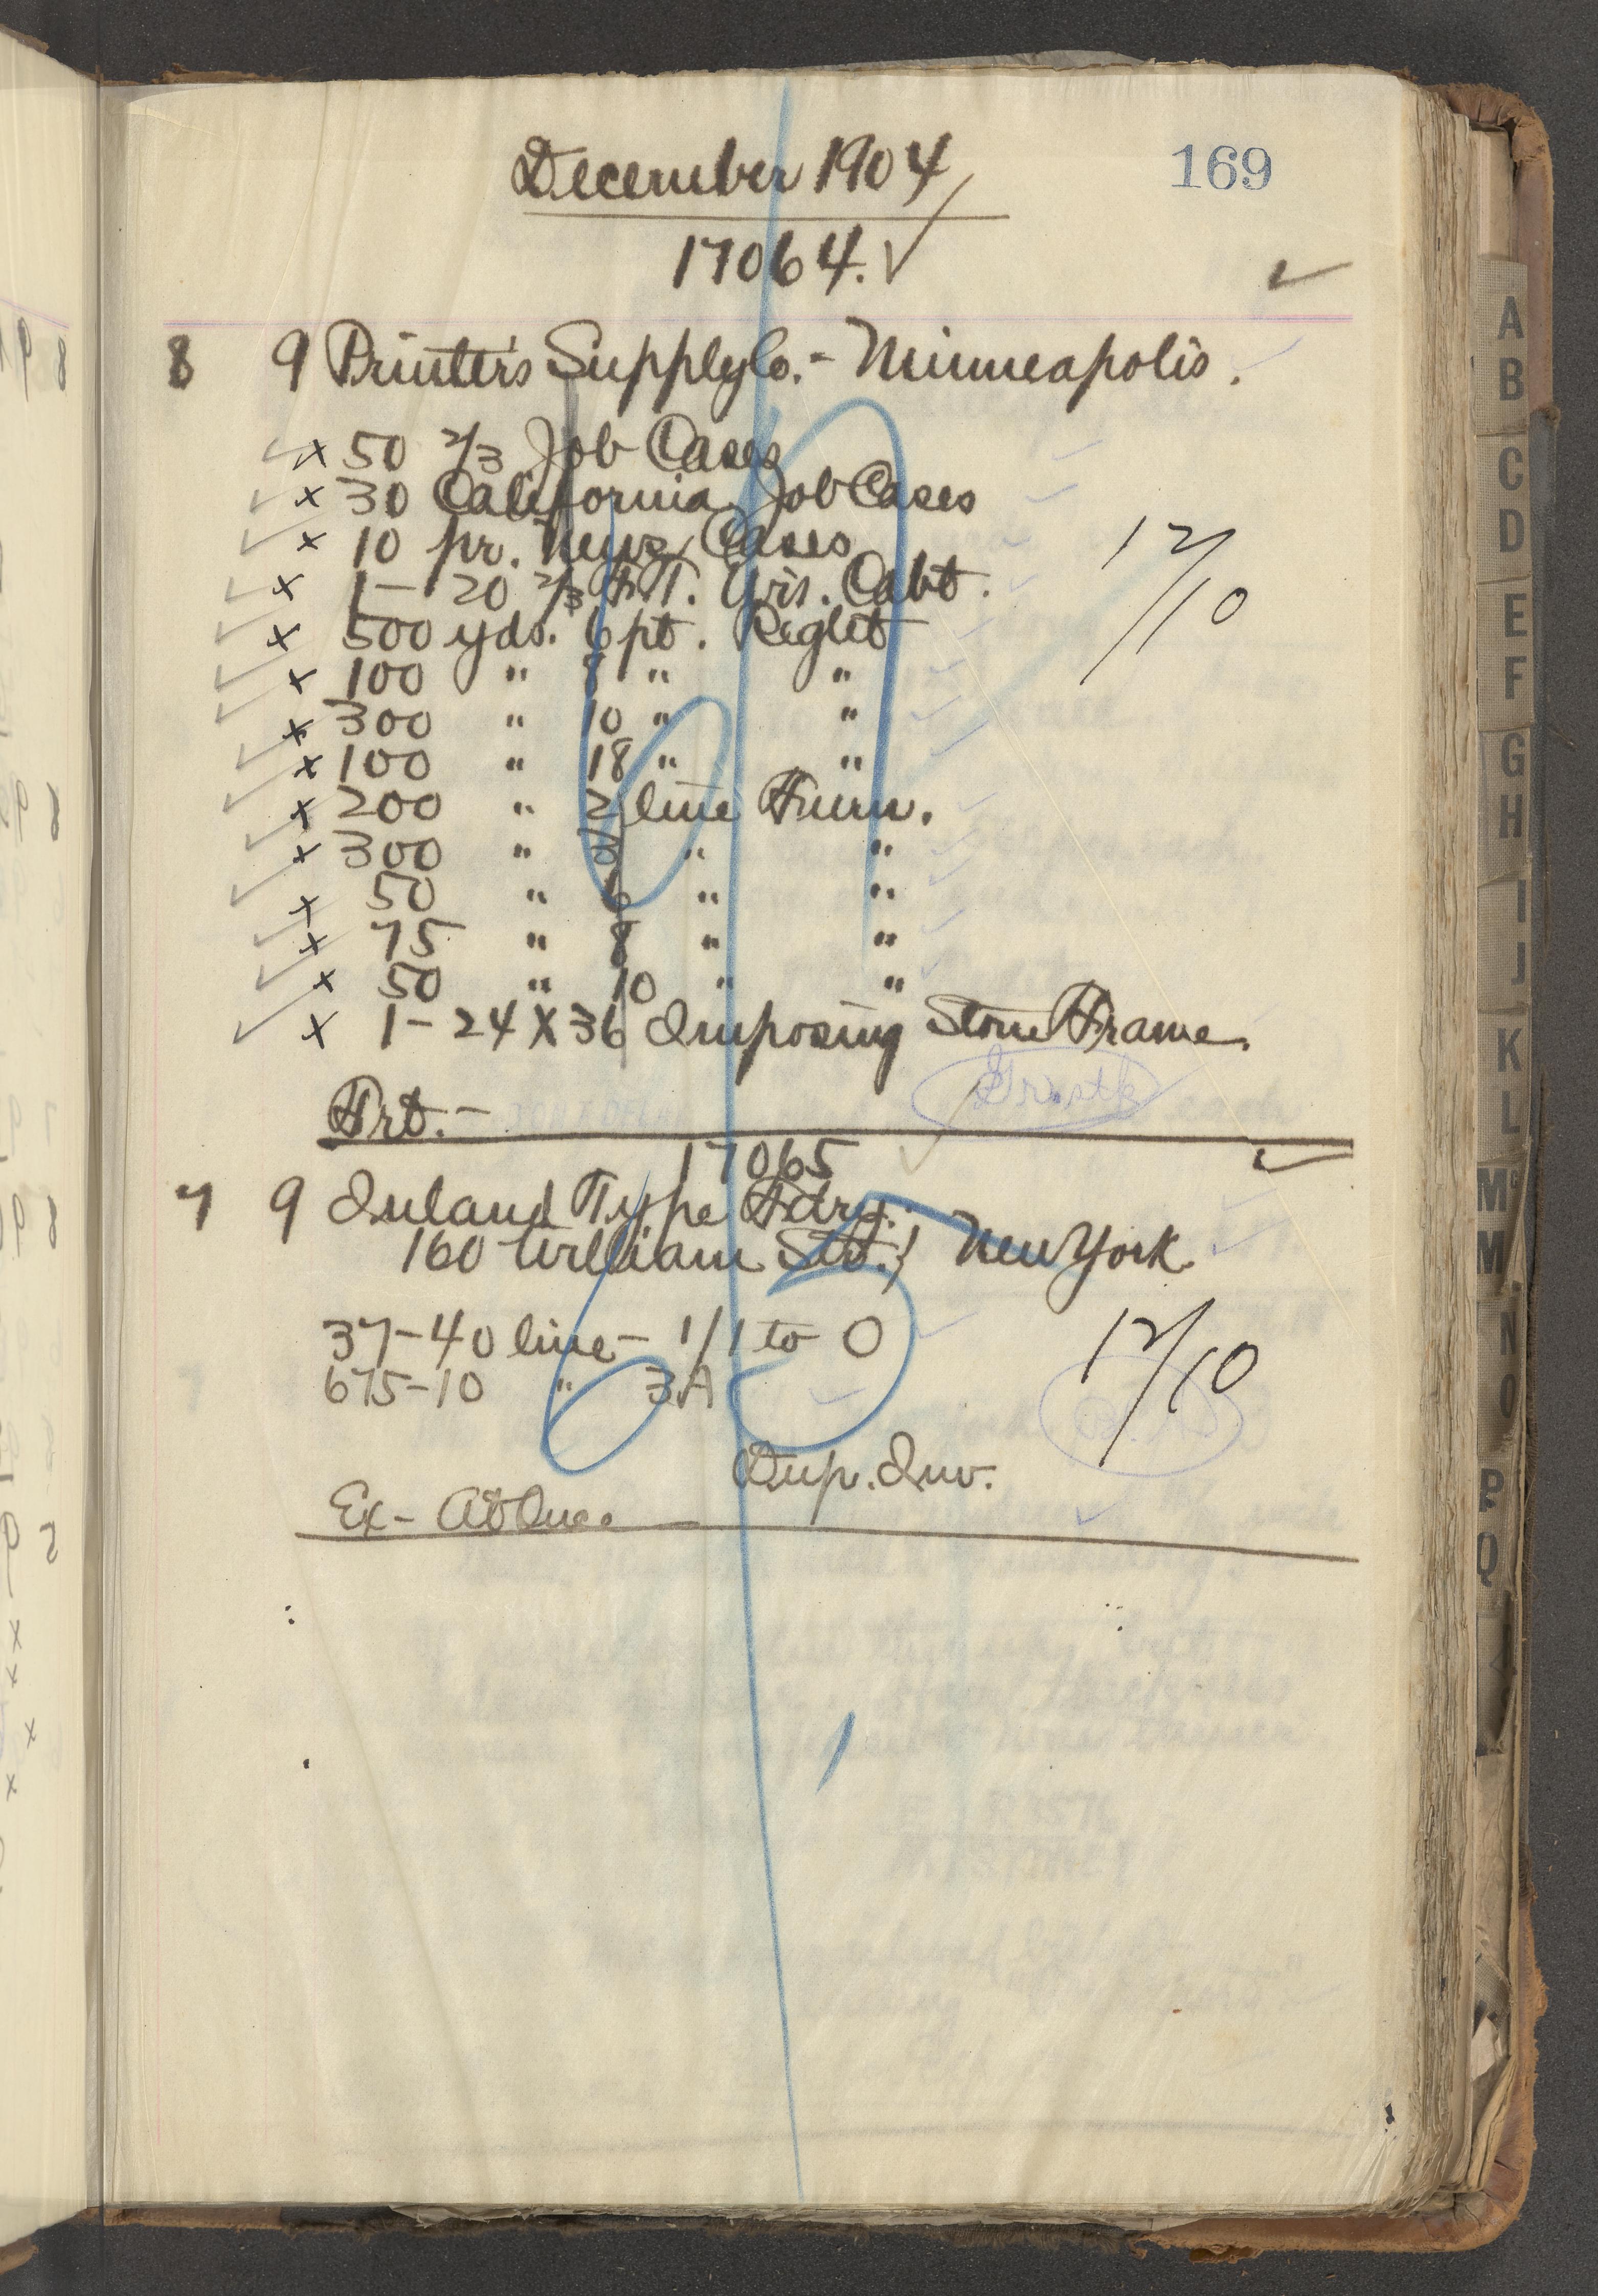 December 1904
169
17064. ✓
8 9 Printer's Supply Co. - Minneapolis.
x 50 2/3 Job Cases
x 30 California Job Cases
x 10 pr. News Cases
12/10
x 1 - 20 2/3 F. T. Gris. Cabt.
x 500 yds. 6 pt. Reglet
x 100 " 8 " "
x 300 " 10 " "
x 100 " 18 " "
x 200 " 2 line Furn.
x 300 " " "
x 50 " 6 " "
x 75 " 8 " "
x 50 " 10 " "
x 1 - 24 X 36 Imposing Stone Frame.
Frt. -
17065
7 9 Inland Type Fdry.
160 William St., New York.
37 - 40 line - 1/1 to 0
12/10
675 - 10 " 3A
Dup. Inv.
Ex - At Once
A
B
C
D
E
F
G
H
I
J
K
L
Mc
M
N
O
P
Q